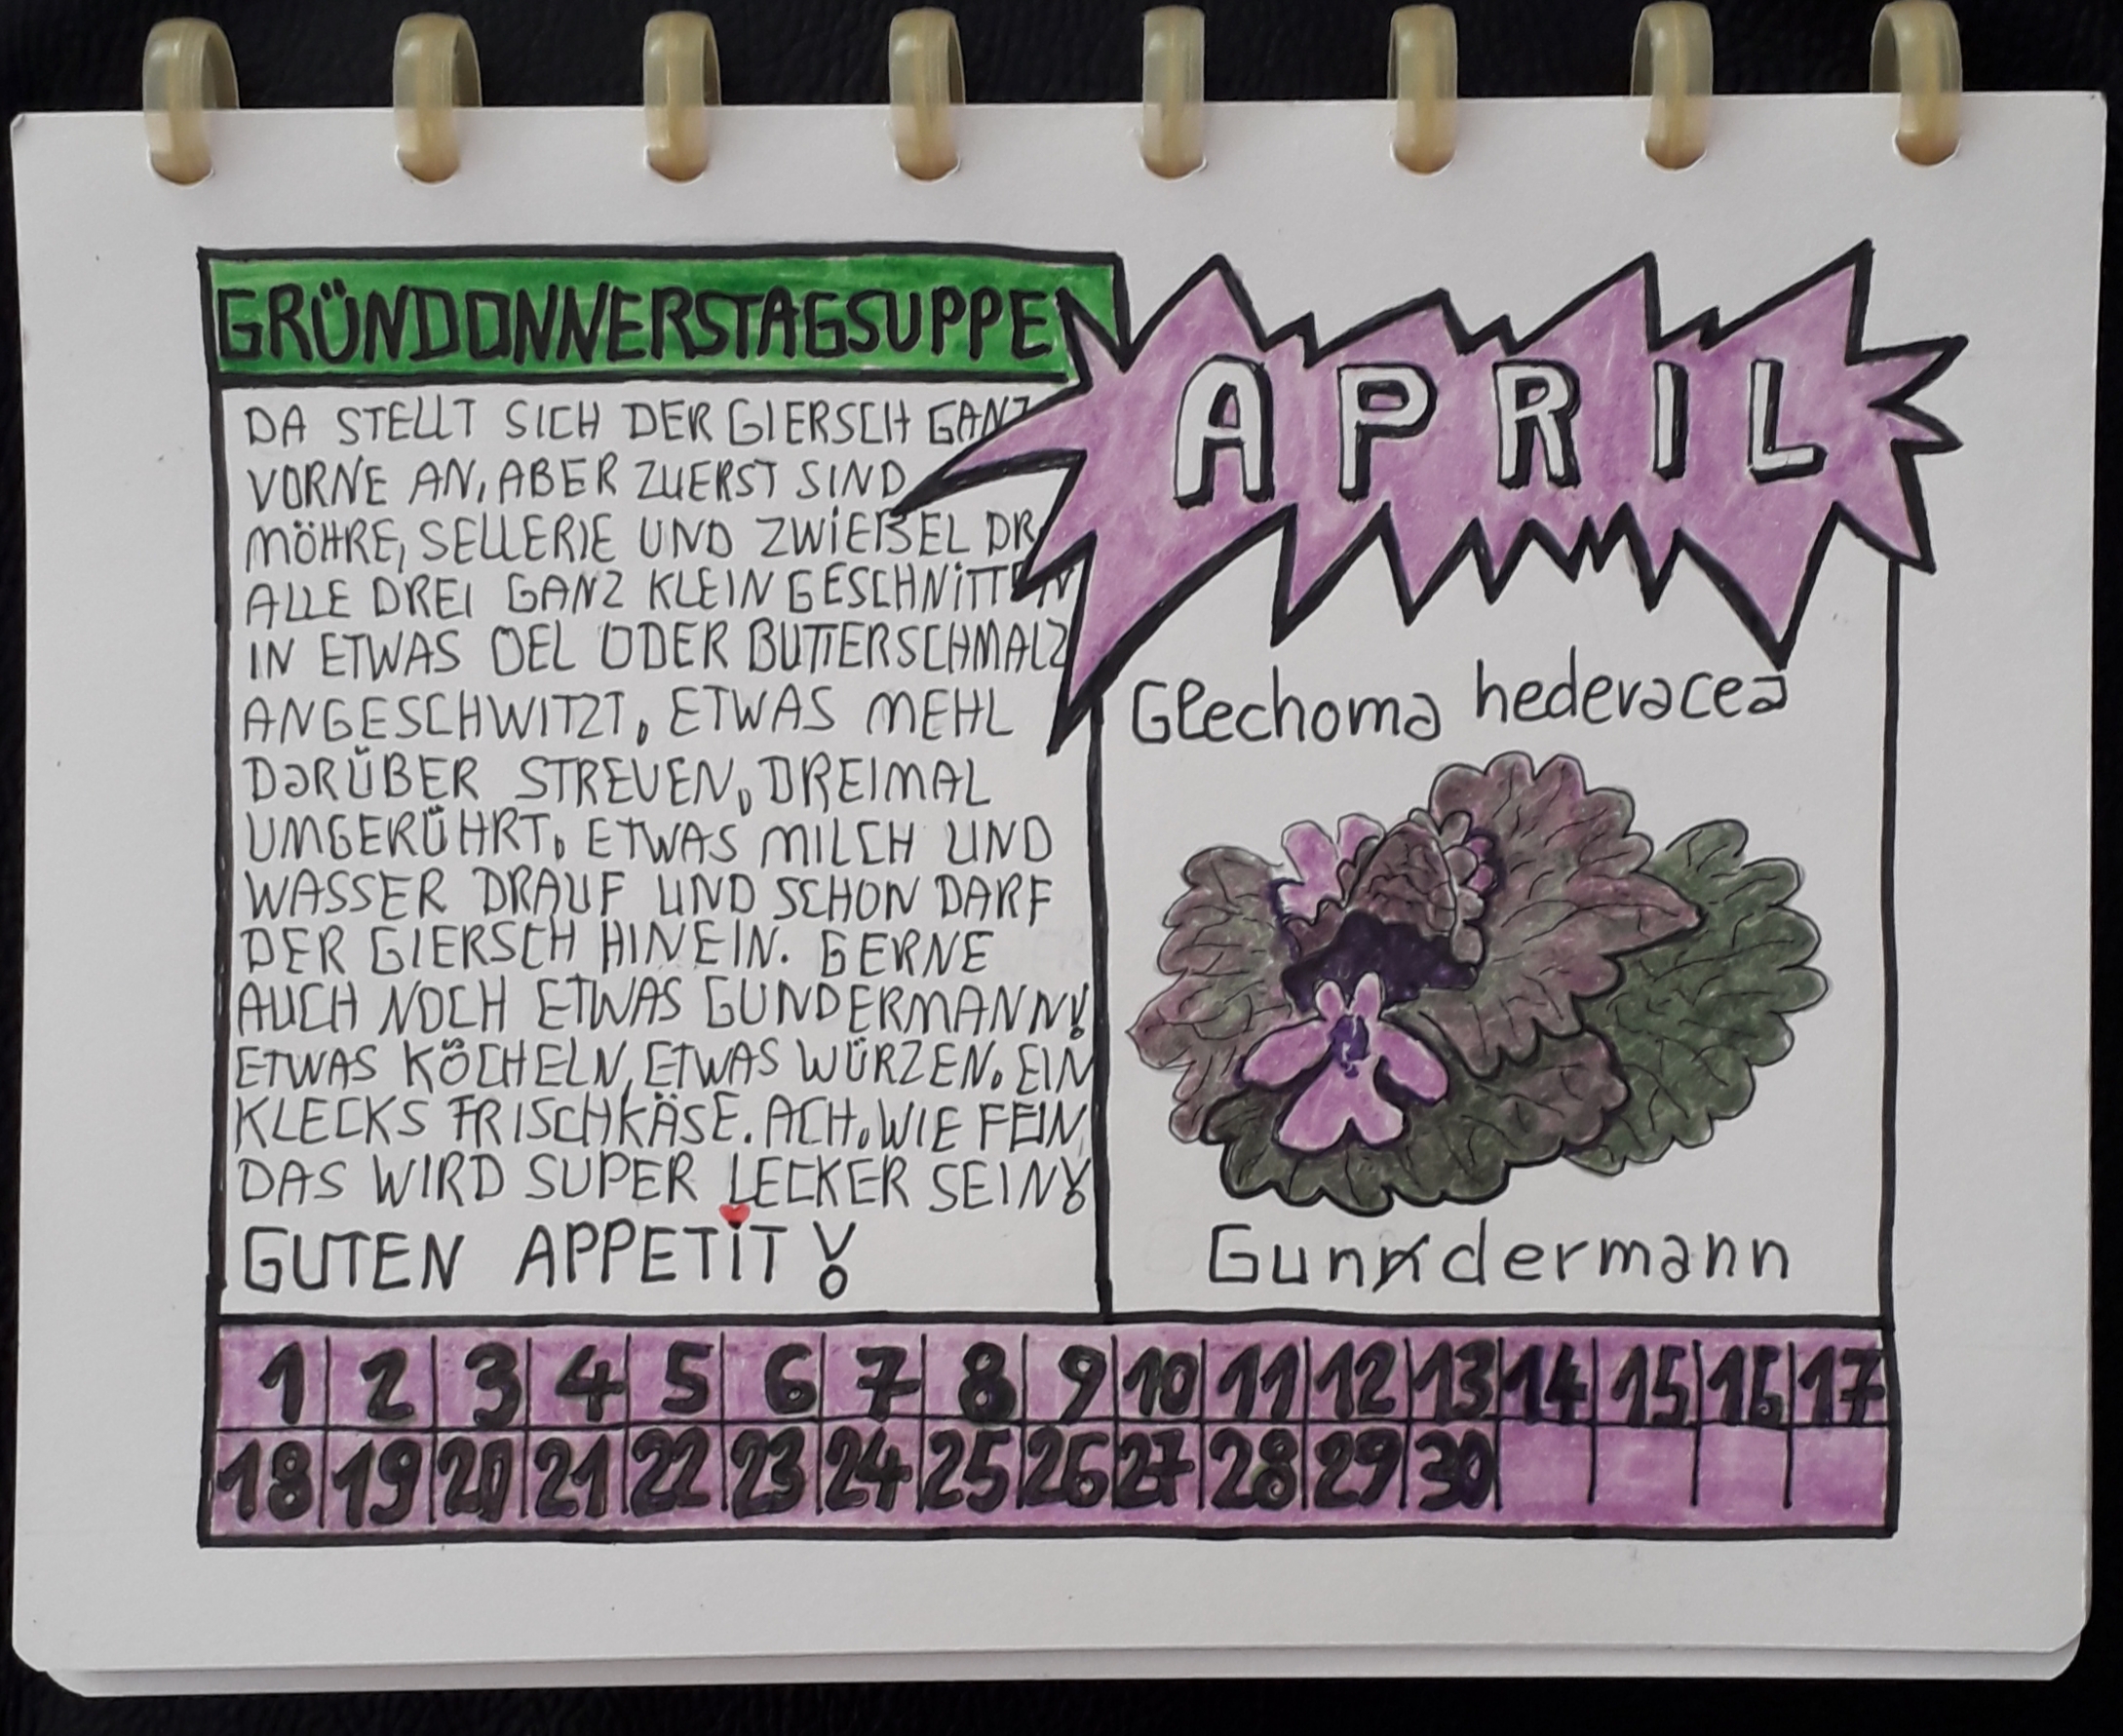 GRÜNDONNERSTAGSUPPE
APRIL
DA STELLT SICH DER GIERSCH GANZ
VORNE AN, ABER ZUERST SIND
MÖHRE, SELLERIE UND ZWIEBEL DR
ALLE DREI GANZ KLEIN GESCHNITTEN
IN ETWAS OEL ODER BUTTERSCHMALZ
ANGESCHWITZT, ETWAS MEHL
DARÜBER STREUEN, DREIMAL
UMGERÜHRT, ETWAS MILCH UND
WASSER DRAUF UND SCHON DARF
DER GIERSCH HINEIN. GERNE
AUCH NOCH ETWAS GUNDERMANN!
ETWAS KÖCHELN, ETWAS WÜRZEN. EIN
KLECKS FRISCHKÄSE. ACH, WIE FEIN,
DAS WIRD SUPER LECKER SEIN!
GUTEN APPETIT!
Glechoma hederacea
Gundermann
1 2 3 4 5 6 7 8 9 10 11 12 13 14 15 16 17
18 19 20 21 22 23 24 25 26 27 28 29 30